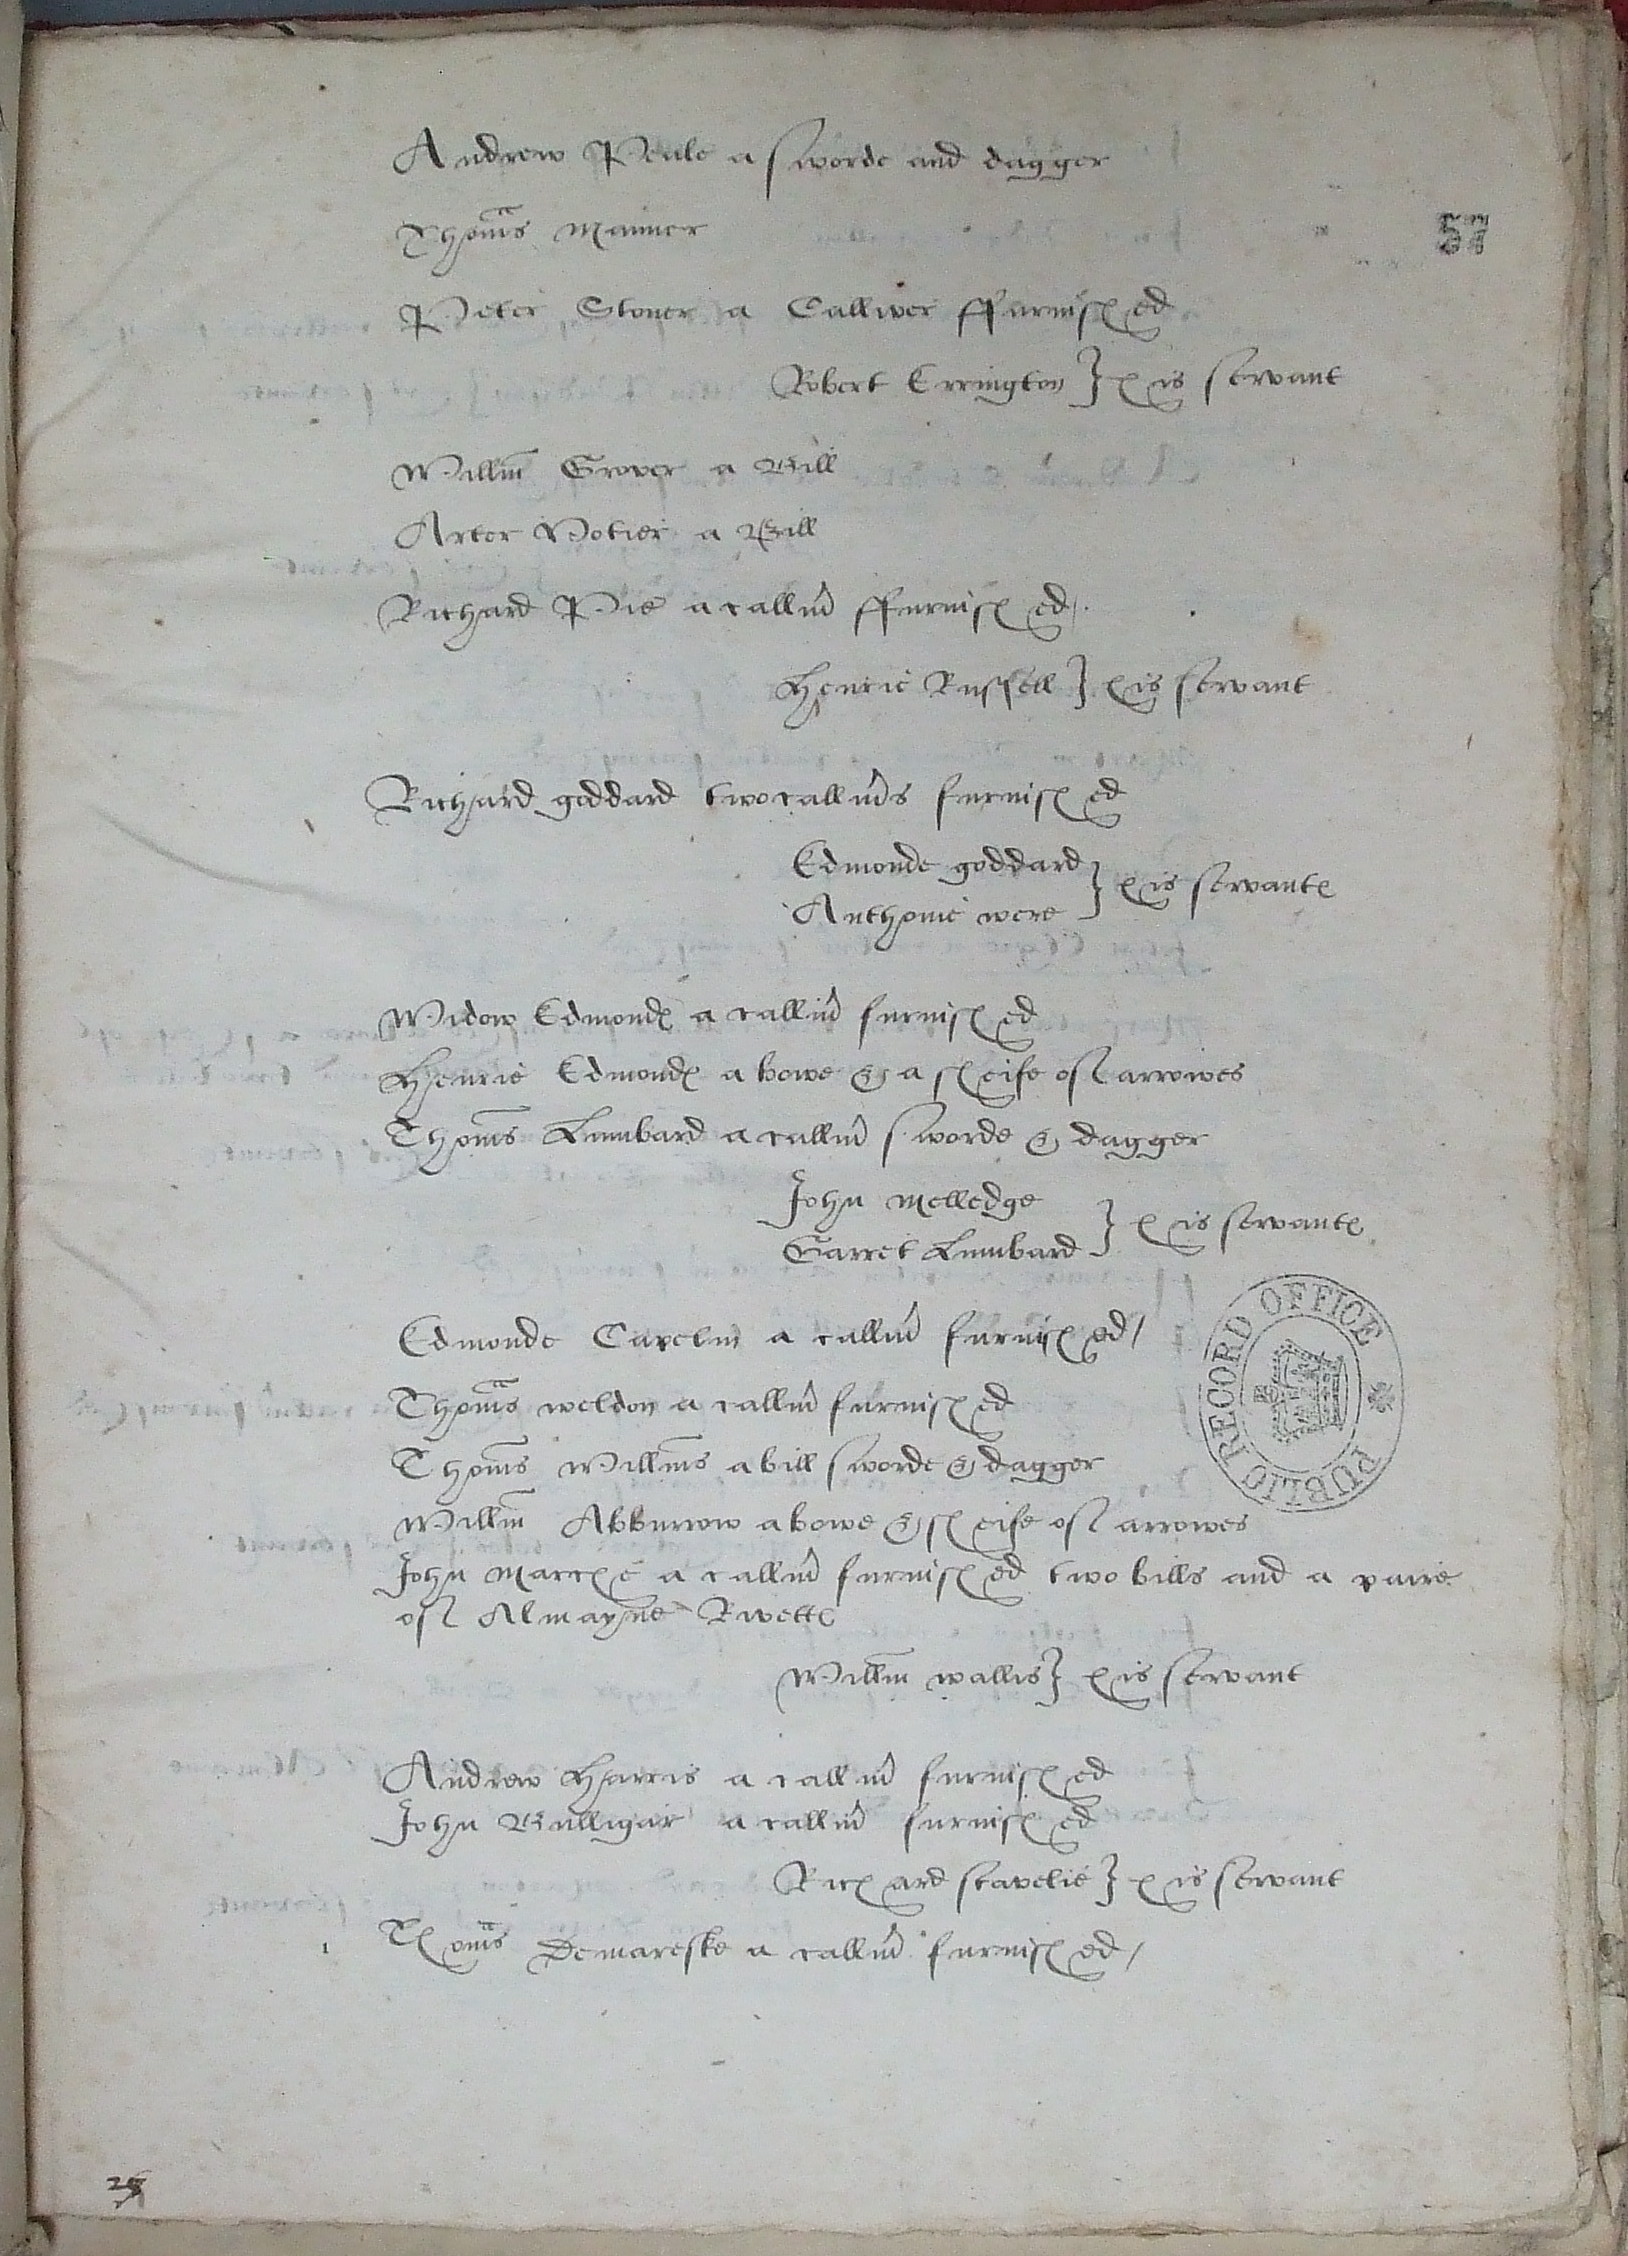 Andrew Peale a sworde and dagger
Thoms Manner
57
Peter Stoner a Calliver ffurnished
Robert Errington } his servant
Willm Grover a Bill
Arter Potier a Bill
Richard Pie a callivr ffurnished
Henrie Russell } his servant
Richard goddard two callivrs furnished
Edmonde goddard
Anthonie were } his servantes
Widow Edmondes a callivr furnished
Henrie Edmondes a bowe & a sheife of arrowes
Thoms Lumbard a callivr sworde & dagger
John Melledge
Garret Lumbard } his servantes
Edmonde Capelin a callivr furnished
Thoms weldon a callivr furnished
Thoms Willms a bill sworde & dagger
Willm Abburrow a bowe & sheife of arrowes
John Marche a callivr furnished two bills and a paire
of Almayne Rivettes
Willm wallis } his servant
Andrew Harris a callivr furnished
John Bulligar a callivr furnished
Richard stavelie } his servant
Thoms Demareske a callivr furnished
PUBLIC RECORD OFFICE